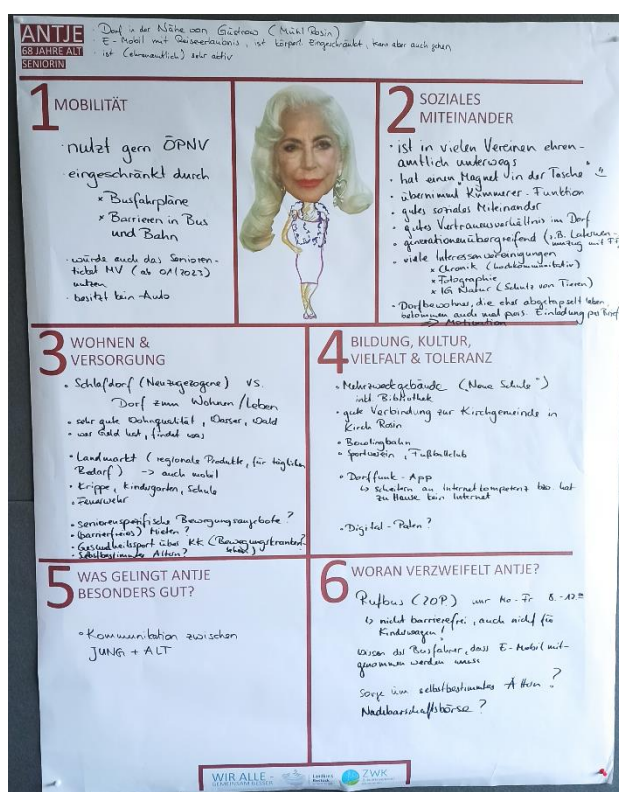 ANTJE
68 JAHRE ALT
SENIORIN
· Dorf in der Nähe von Güstrow (Mühl Rosin)
· E-Mobil mit Reiseerlaubnis, ist körperl. eingeschränkt, kann aber auch gehen
· ist (ehrenamtlich) sehr aktiv
1 MOBILITÄT
· nutzt gern ÖPNV
· eingeschränkt durch
× Busfahrpläne
× Barrieren in Bus
und Bahn
· würde auch das Senioren-
ticket MV (ab 01/2023)
nutzen
· besitzt kein Auto
2 SOZIALES
MITEINANDER
· ist in vielen Vereinen ehren-
amtlich unterwegs
· hat einen "Magnet in der Tasche"
· übernimmt Kümmerer-Funktion
· gutes soziales Miteinander
· gutes Vertrauensverhältnis im Dorf
· generationenübergreifend (z.B. Laternen-
umzug mit
· viele Interessenvereinigungen
× Chronik (hochkommunikativ)
× Fotographie
× IG Natur (Schutz von Tieren)
· Dorfbewohner, die eher abgekapselt leben,
bekommen auch mal pers. Einladung per Brief
→ Motivation
3 WOHNEN &
VERSORGUNG
· Schlafdorf (Neuzugezogene) VS.
Dorf zum Wohnen/Leben
· sehr gute Wohnqualität, Wasser, Wald
· wer Geld hat, findet was
· Landmarkt (regionale Produkte, für täglichen
Bedarf) -> auch mobil
· Krippe, Kindergarten, Schule
· Feuerwehr
· seniorenspezifische Bewegungsangebote?
· (barrierfreies) Mieten?
· Gesundheitssport über KK (Bewegungskranken?
· Selbstbestimmtes Altern?
4 BILDUNG, KULTUR,
VIELFALT & TOLERANZ
· Mehrzweckgebäude ("Neue Schule")
inkl. Bibliothek
· gute Verbindung zur Kirchgemeinde in
Kirch Rosin
· Bowlingbahn
· Sportverein, Fußballclub
· Dorffunk-App
↳ scheitern an Internetkompetenz bzw. hat
zu Hause kein Internet
· Digital-Paten?
5 WAS GELINGT ANTJE
BESONDERS GUT?
· Kommunikation zwischen
JUNG + ALT
6 WORAN VERZWEIFELT ANTJE?
Rufbus (ZOP) nur Mo-Fr 8.-17.⁰⁰
↳ nicht barrierefrei, auch nicht für
Kinderwagen!
Wissen der Busfahrer, dass E-Mobil mit-
genommen werden muss
Sorge um selbstbestimmtes Altern?
Nachbarschaftsbörse?
WIR ALLE -
GEMEINSAM BESSER.
Landkreis
Rostock
ZWK